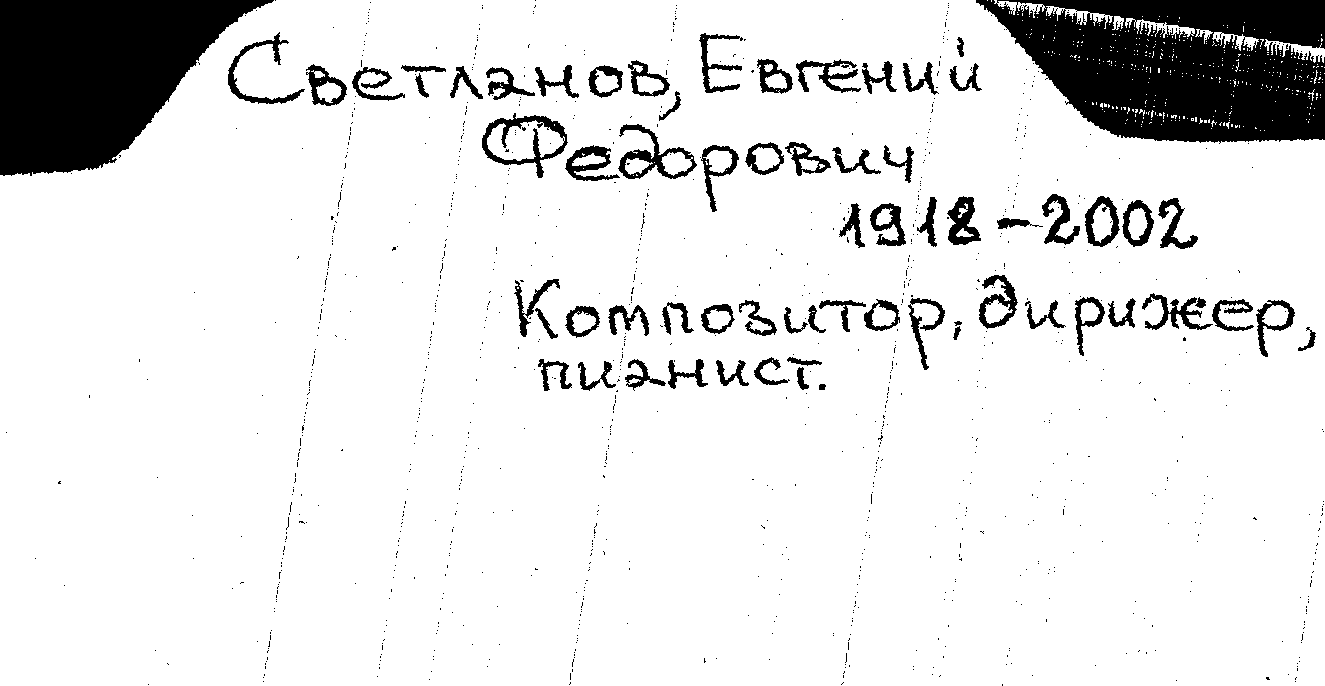 Светланов, Евгений
Федорович
1918-2002
Композитор, дирижер,
пианист.